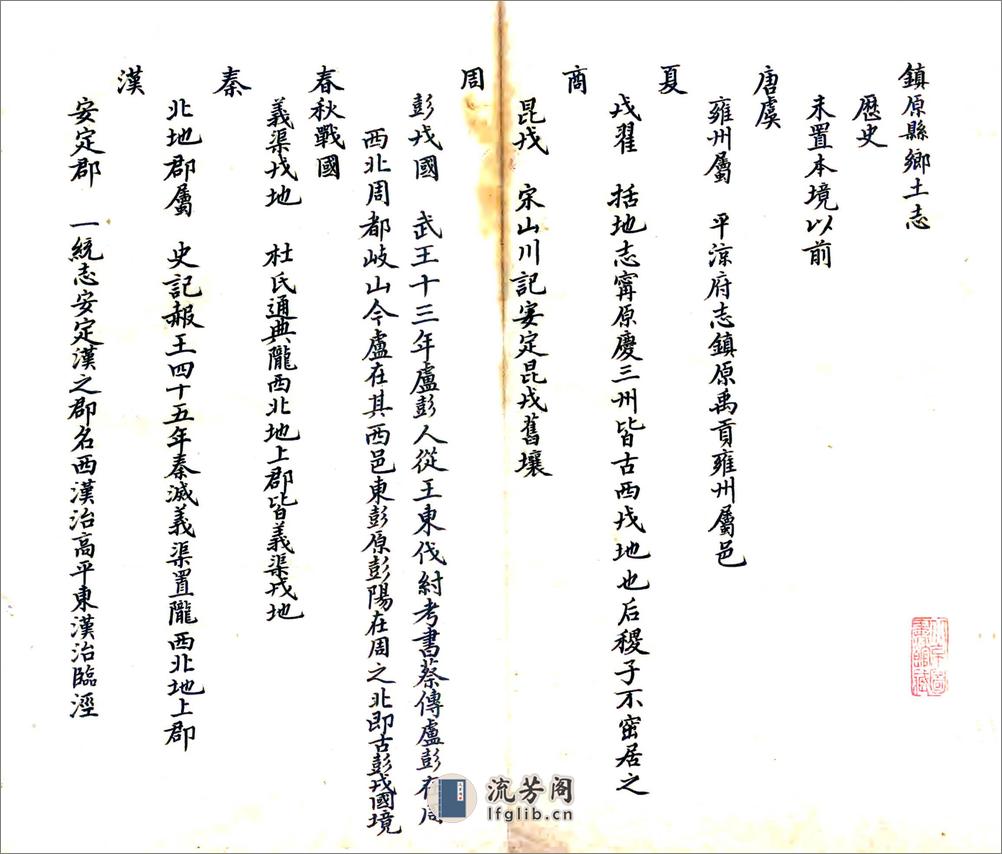 鎮原縣鄉土志
歷史
未置本境以前
唐虞
雍州屬　平涼府志鎮原禹貢雍州屬邑
夏
戎翟　括地志寧原慶三州皆古西戎地也后稷子不窋居之
商
昆戎　宋山川記安定昆戎舊壤
周
彭戎國　武王十三年盧彭人從王東伐紂考書蔡傳盧彭在周
西北周都岐山今盧在其西邑東彭原彭陽在周之北即古彭戎國境
春秋戰國
義渠戎地　杜氏通典隴西北地上郡皆義渠戎地
秦
北地郡屬　史記赧王四十五年秦滅義渠置隴西北地上郡
漢
安定郡　一統志安定漢之郡名西漢治高平東漢治臨涇
流芳阁
lfglib.cn